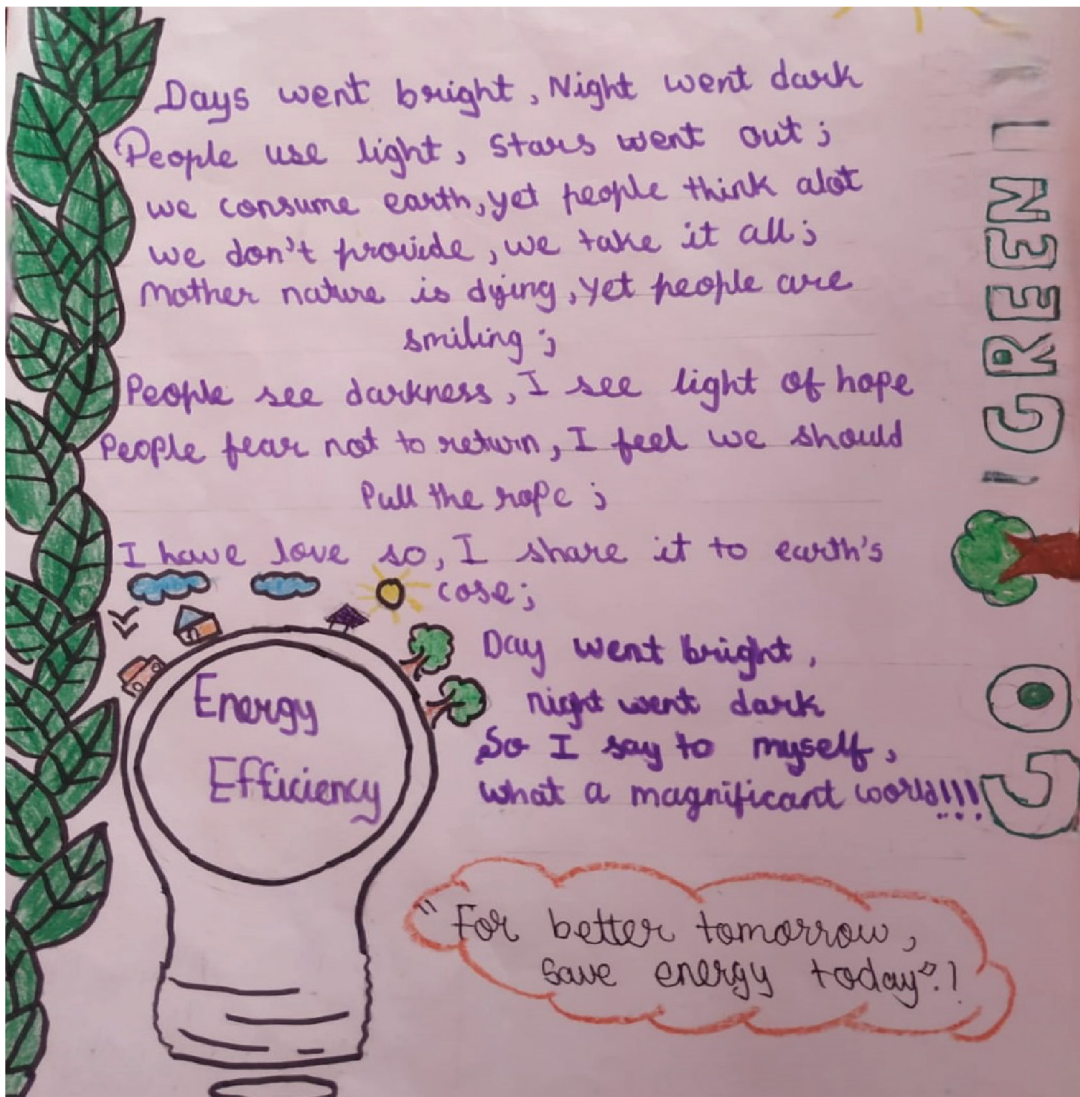 Days went bright, Night went dark
People use light, Stars went out;
we consume earth, yet people think alot
we don't provide, we take it all;
Mother nature is dying, yet people are
smiling;
People see darkness, I see light of hope
People fear not to return, I feel we should
Pull the rope;
I have love so, I share it to earth's
case;
Day went bright,
night went dark
So I say to myself,
what a magnificant world!!!
Energy
Efficiency
"For better tomorrow,
save energy today".!
GO GREEN